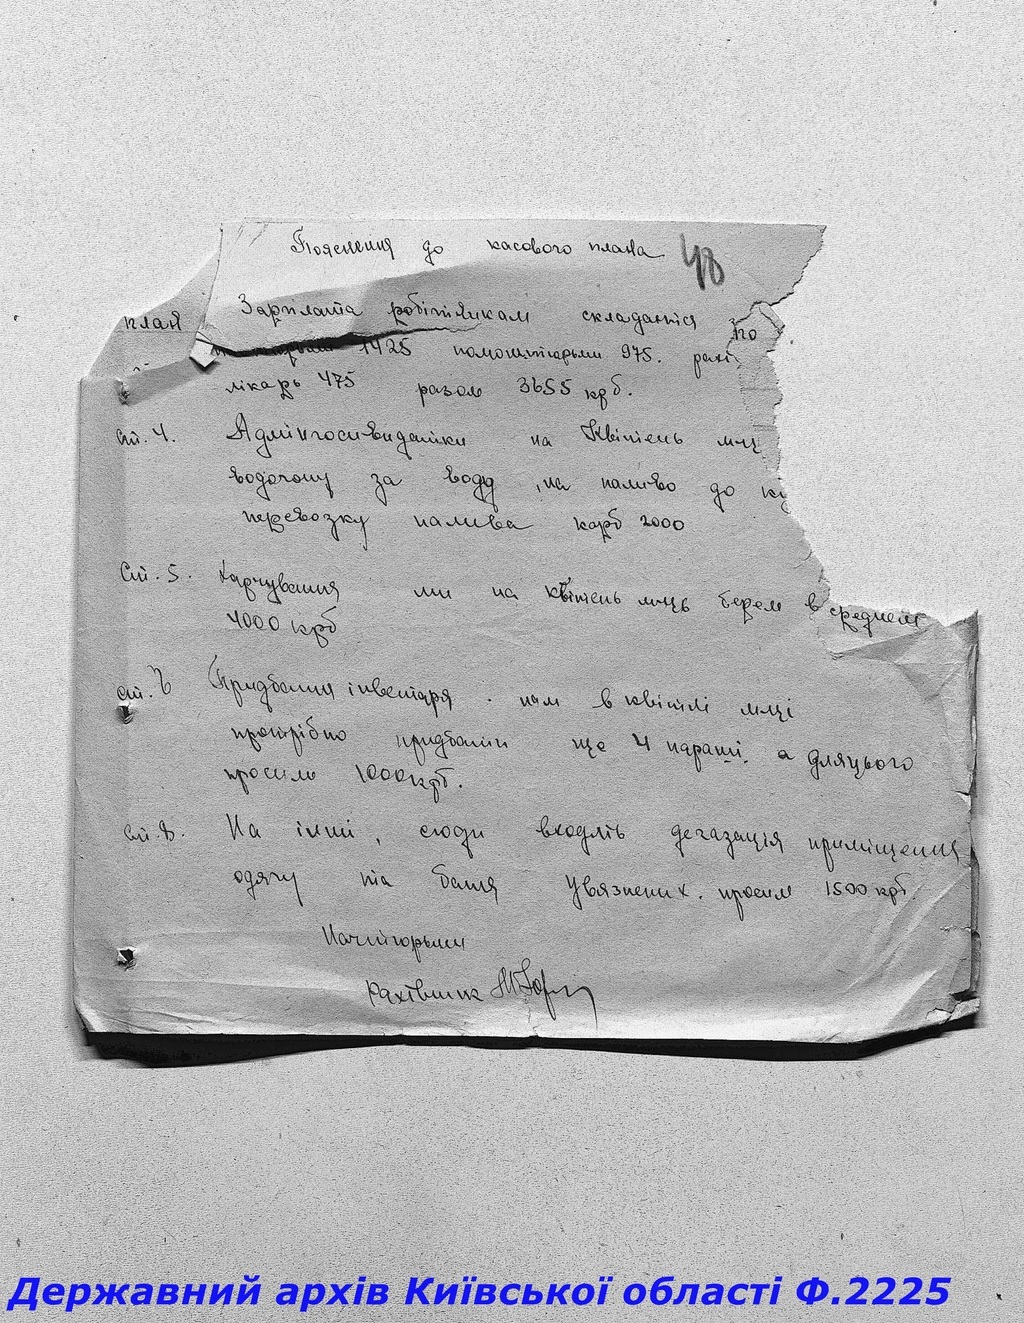 Пояснення до касового плана 48
план Зарплата робітникам складаєтся по
1425 помоштюрьми 975. рах
лікарь 475 разом 3655 крб.
ст. 4. Адмінгоспвидатки на Квітень мць
водогону за воду, на паливо до ку
перевозку палива карб 2000
Ст. 5. Харчування ми на квітень мць берем в среднем
4000 крб
ст. 6 Придбання інвентаря. нам в квітні мці
протрібно придбати ще 4 параші. а дляцього
просимо 1000 крб.
ст. 8. На інші, сюди входять дегазація приміщення
одягу та баня увязнених. просим 1500 крб.
Начтюрьми
Рахівник
Державний архів Київської області Ф.2225